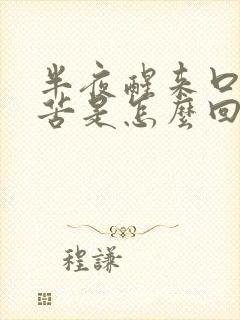 半夜醒来口
苦是怎麼回
程謙